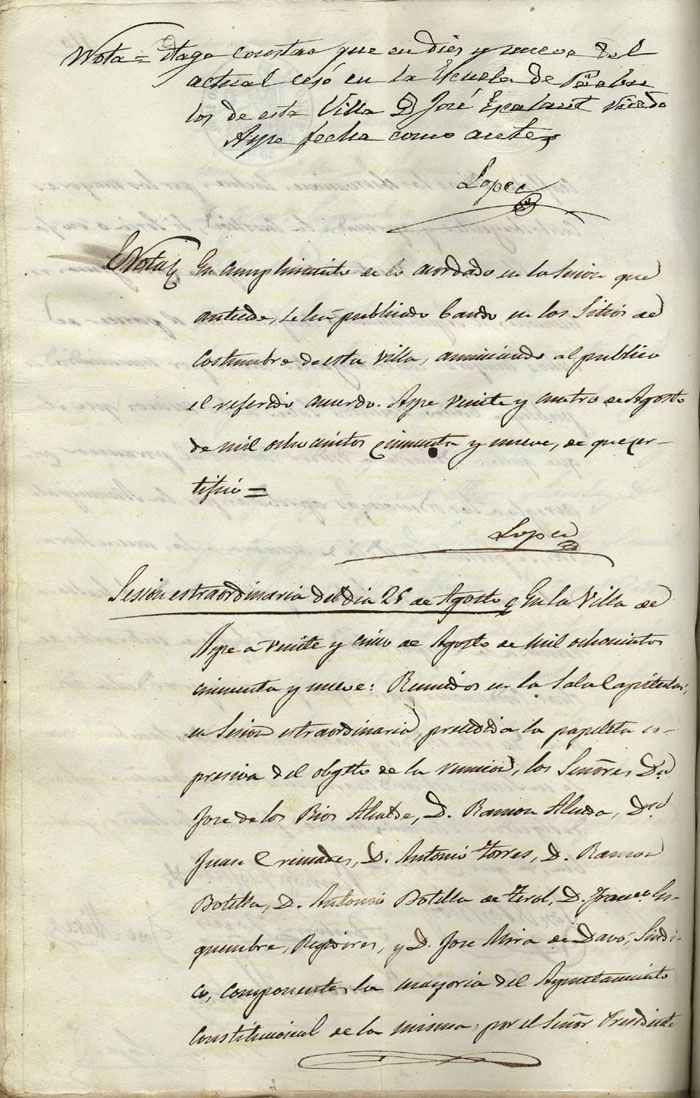 Nota = Hago constar que en diez y nueve del
actual cesó en la Escuela de Párvu
los de esta Villa D José Escalant
Aspe fecha como antes
Lopez
Nota En cumplimiento de lo acordado en la Sesion que
antecede, se ha publicado bando en los Sitios de
Costumbre de esta Villa, anunciando al publico
el referido acuerdo. Aspe Veinte y cuatro de Agosto
de mil ochocientos cincuenta y nueve, de que cer-
tifico =
Lopez
Sesion estraordinaria del dia 25 de Agosto En la Villa de
Aspe a veinte y cinco de Agosto de mil ochocientos
cincuenta y nueve: Reunidos en la Sala Capitular,
en Sesion estraordinaria, precedida la papeleta es-
presiva del obgeto de la reunion, los Señores Dn
Jose de los Rios Alcalde, D. Ramon Alcolea, Dn
Juan Cremades, D. Antonio Torres, D. Ramon
Botella, D. Antonio Botella de Terol, D. Franco Es-
quembre, Regidores, y D. Jose Mira de Davó, Sindi-
co, componentes la mayoria del Ayuntamiento
Constitucional de la misma; por el Señor Presidente